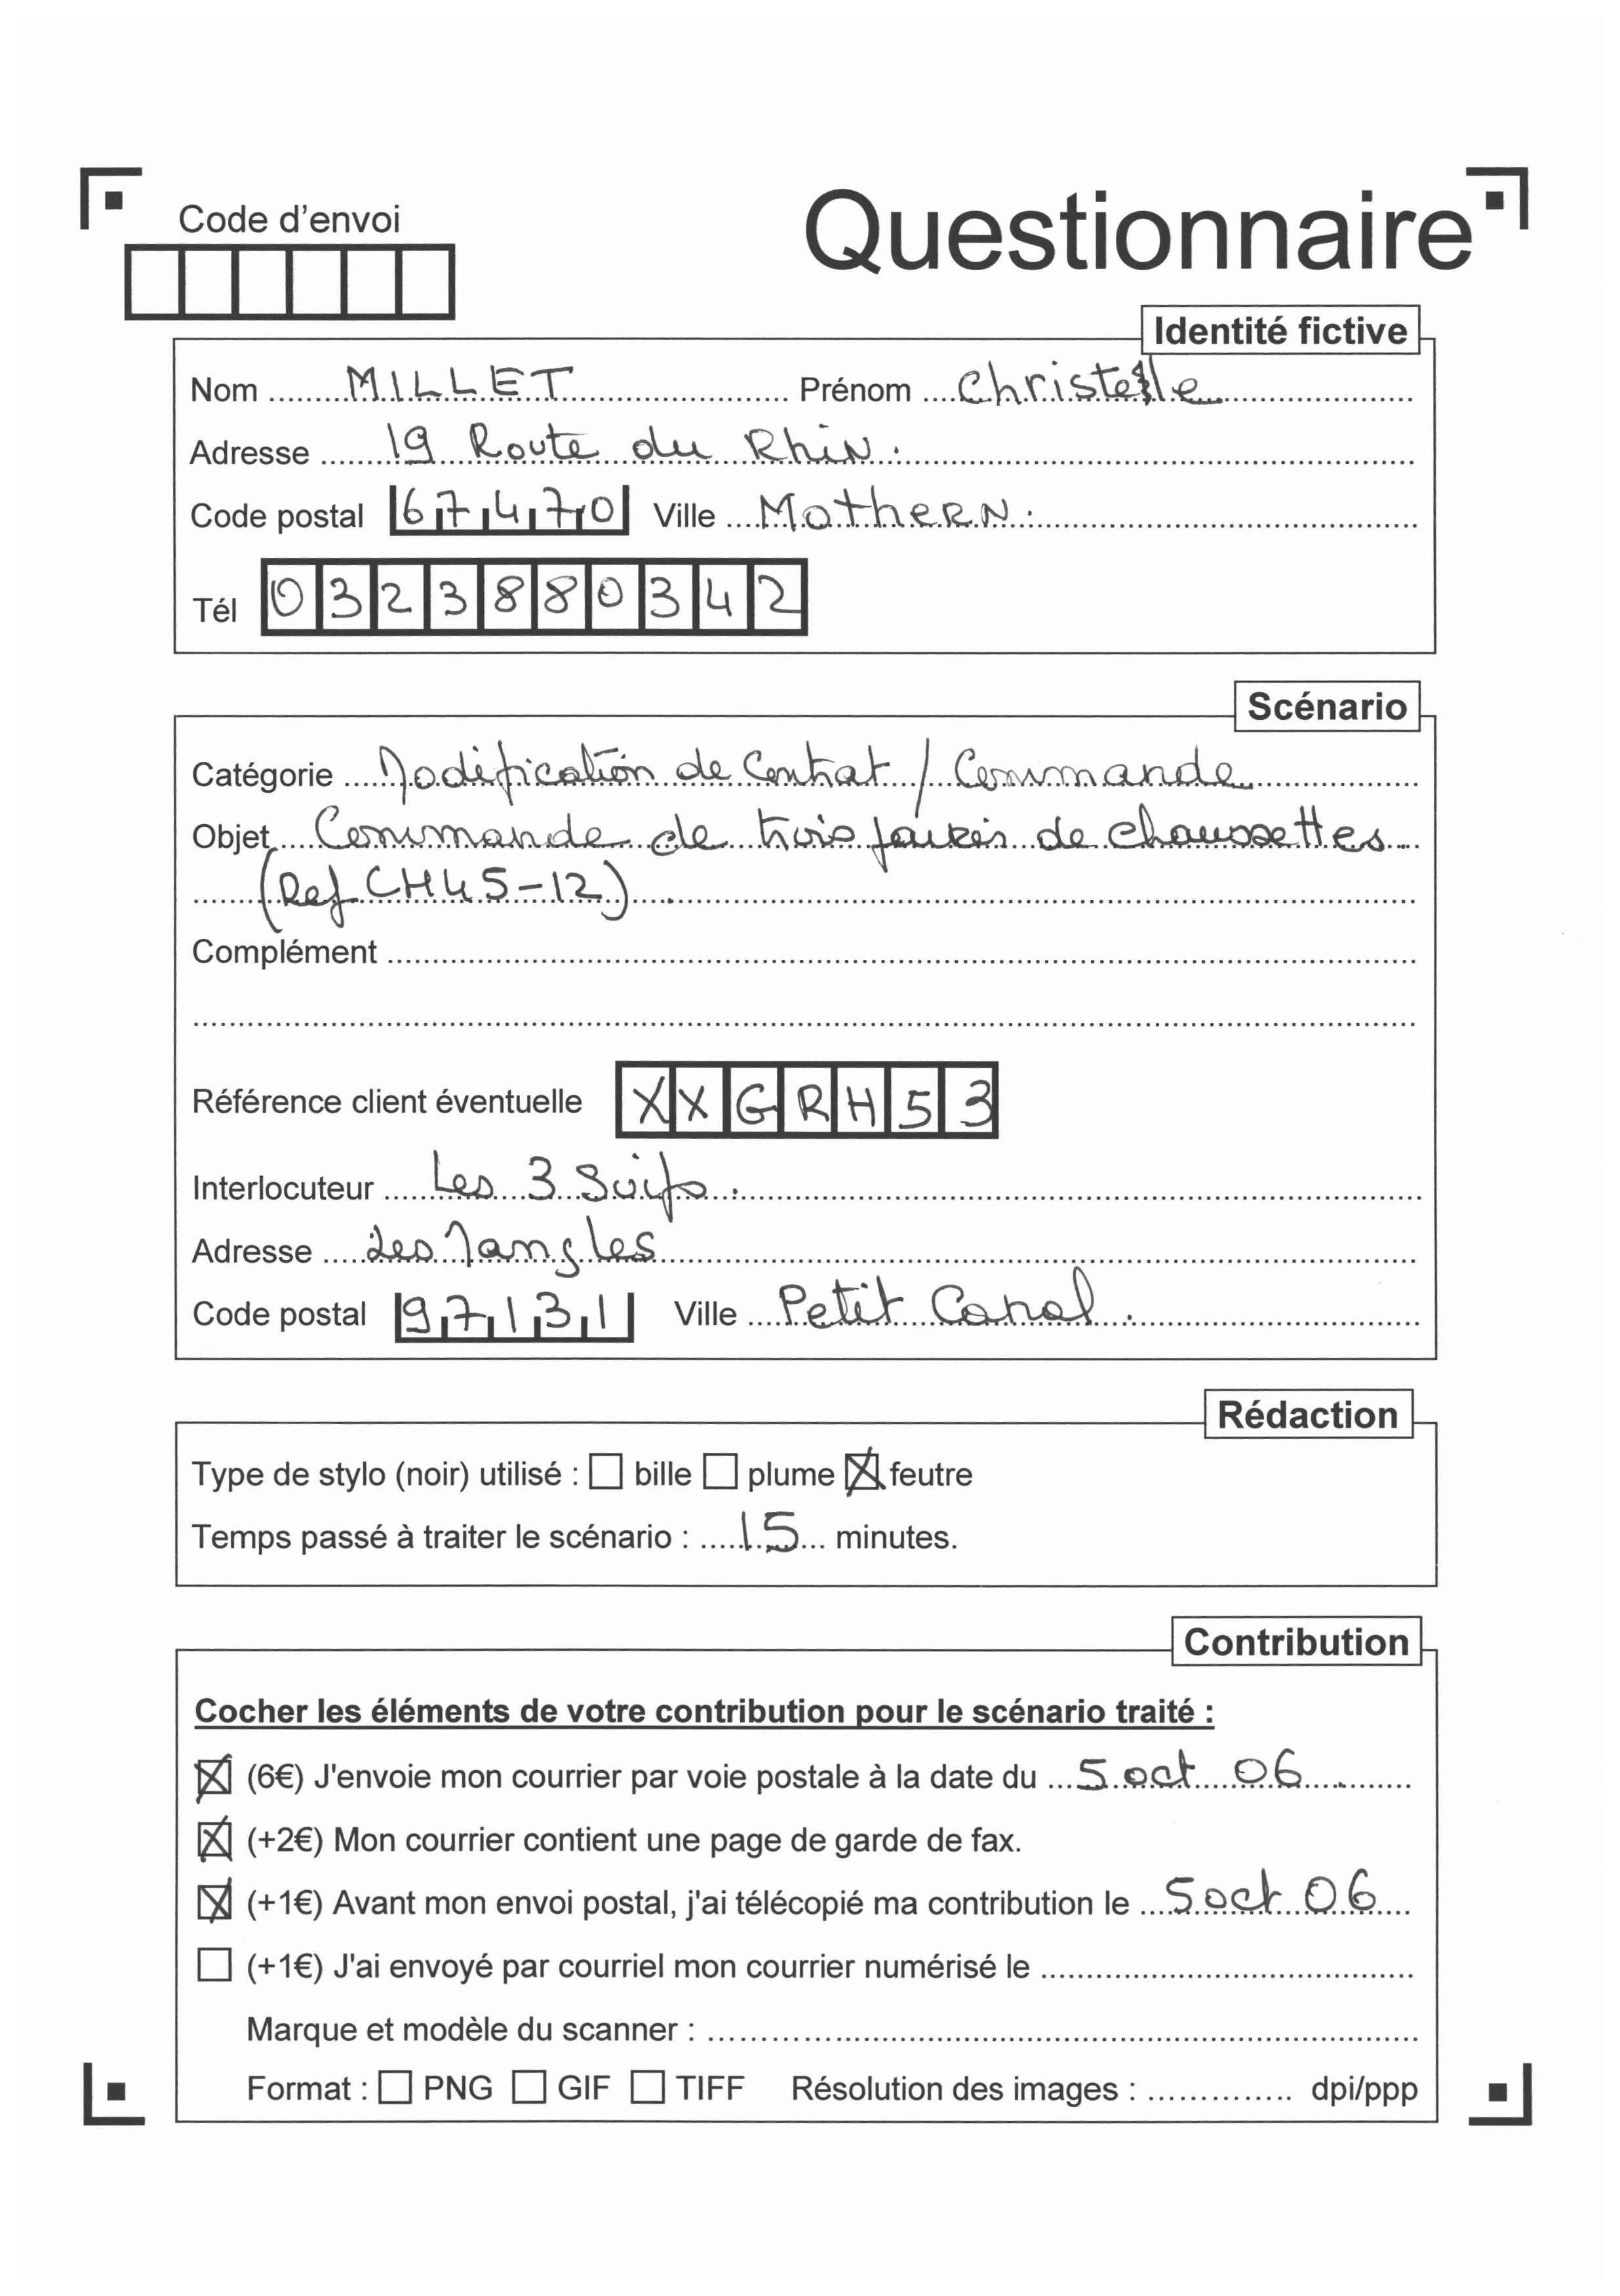 Code d'envoi
Questionnaire
Identité fictive
Nom MILLET Prénom Christelle
Adresse 19 Route du Rhin.
Code postal 67470 Ville Mothern.
Tél 0323880342
Scénario
Catégorie Modification de Contrat / Commande
Objet Commande de trois paires de chaussettes
(Ref CH45-12).
Complément
Référence client éventuelle XXGRH53
Interlocuteur Les 3 Suifs.
Adresse Les Mangles
Code postal 97131 Ville Petit Canal.
Rédaction
Type de stylo (noir) utilisé : ☐ bille ☐ plume ☒ feutre
Temps passé à traiter le scénario : 15 minutes.
Contribution
Cocher les éléments de votre contribution pour le scénario traité :
☒ (6€) J'envoie mon courrier par voie postale à la date du 5 oct 06
☒ (+2€) Mon courrier contient une page de garde de fax.
☒ (+1€) Avant mon envoi postal, j'ai télécopié ma contribution le 5 oct 06
☐ (+1€) J'ai envoyé par courriel mon courrier numérisé le
Marque et modèle du scanner :
Format : ☐ PNG ☐ GIF ☐ TIFF Résolution des images : dpi/ppp